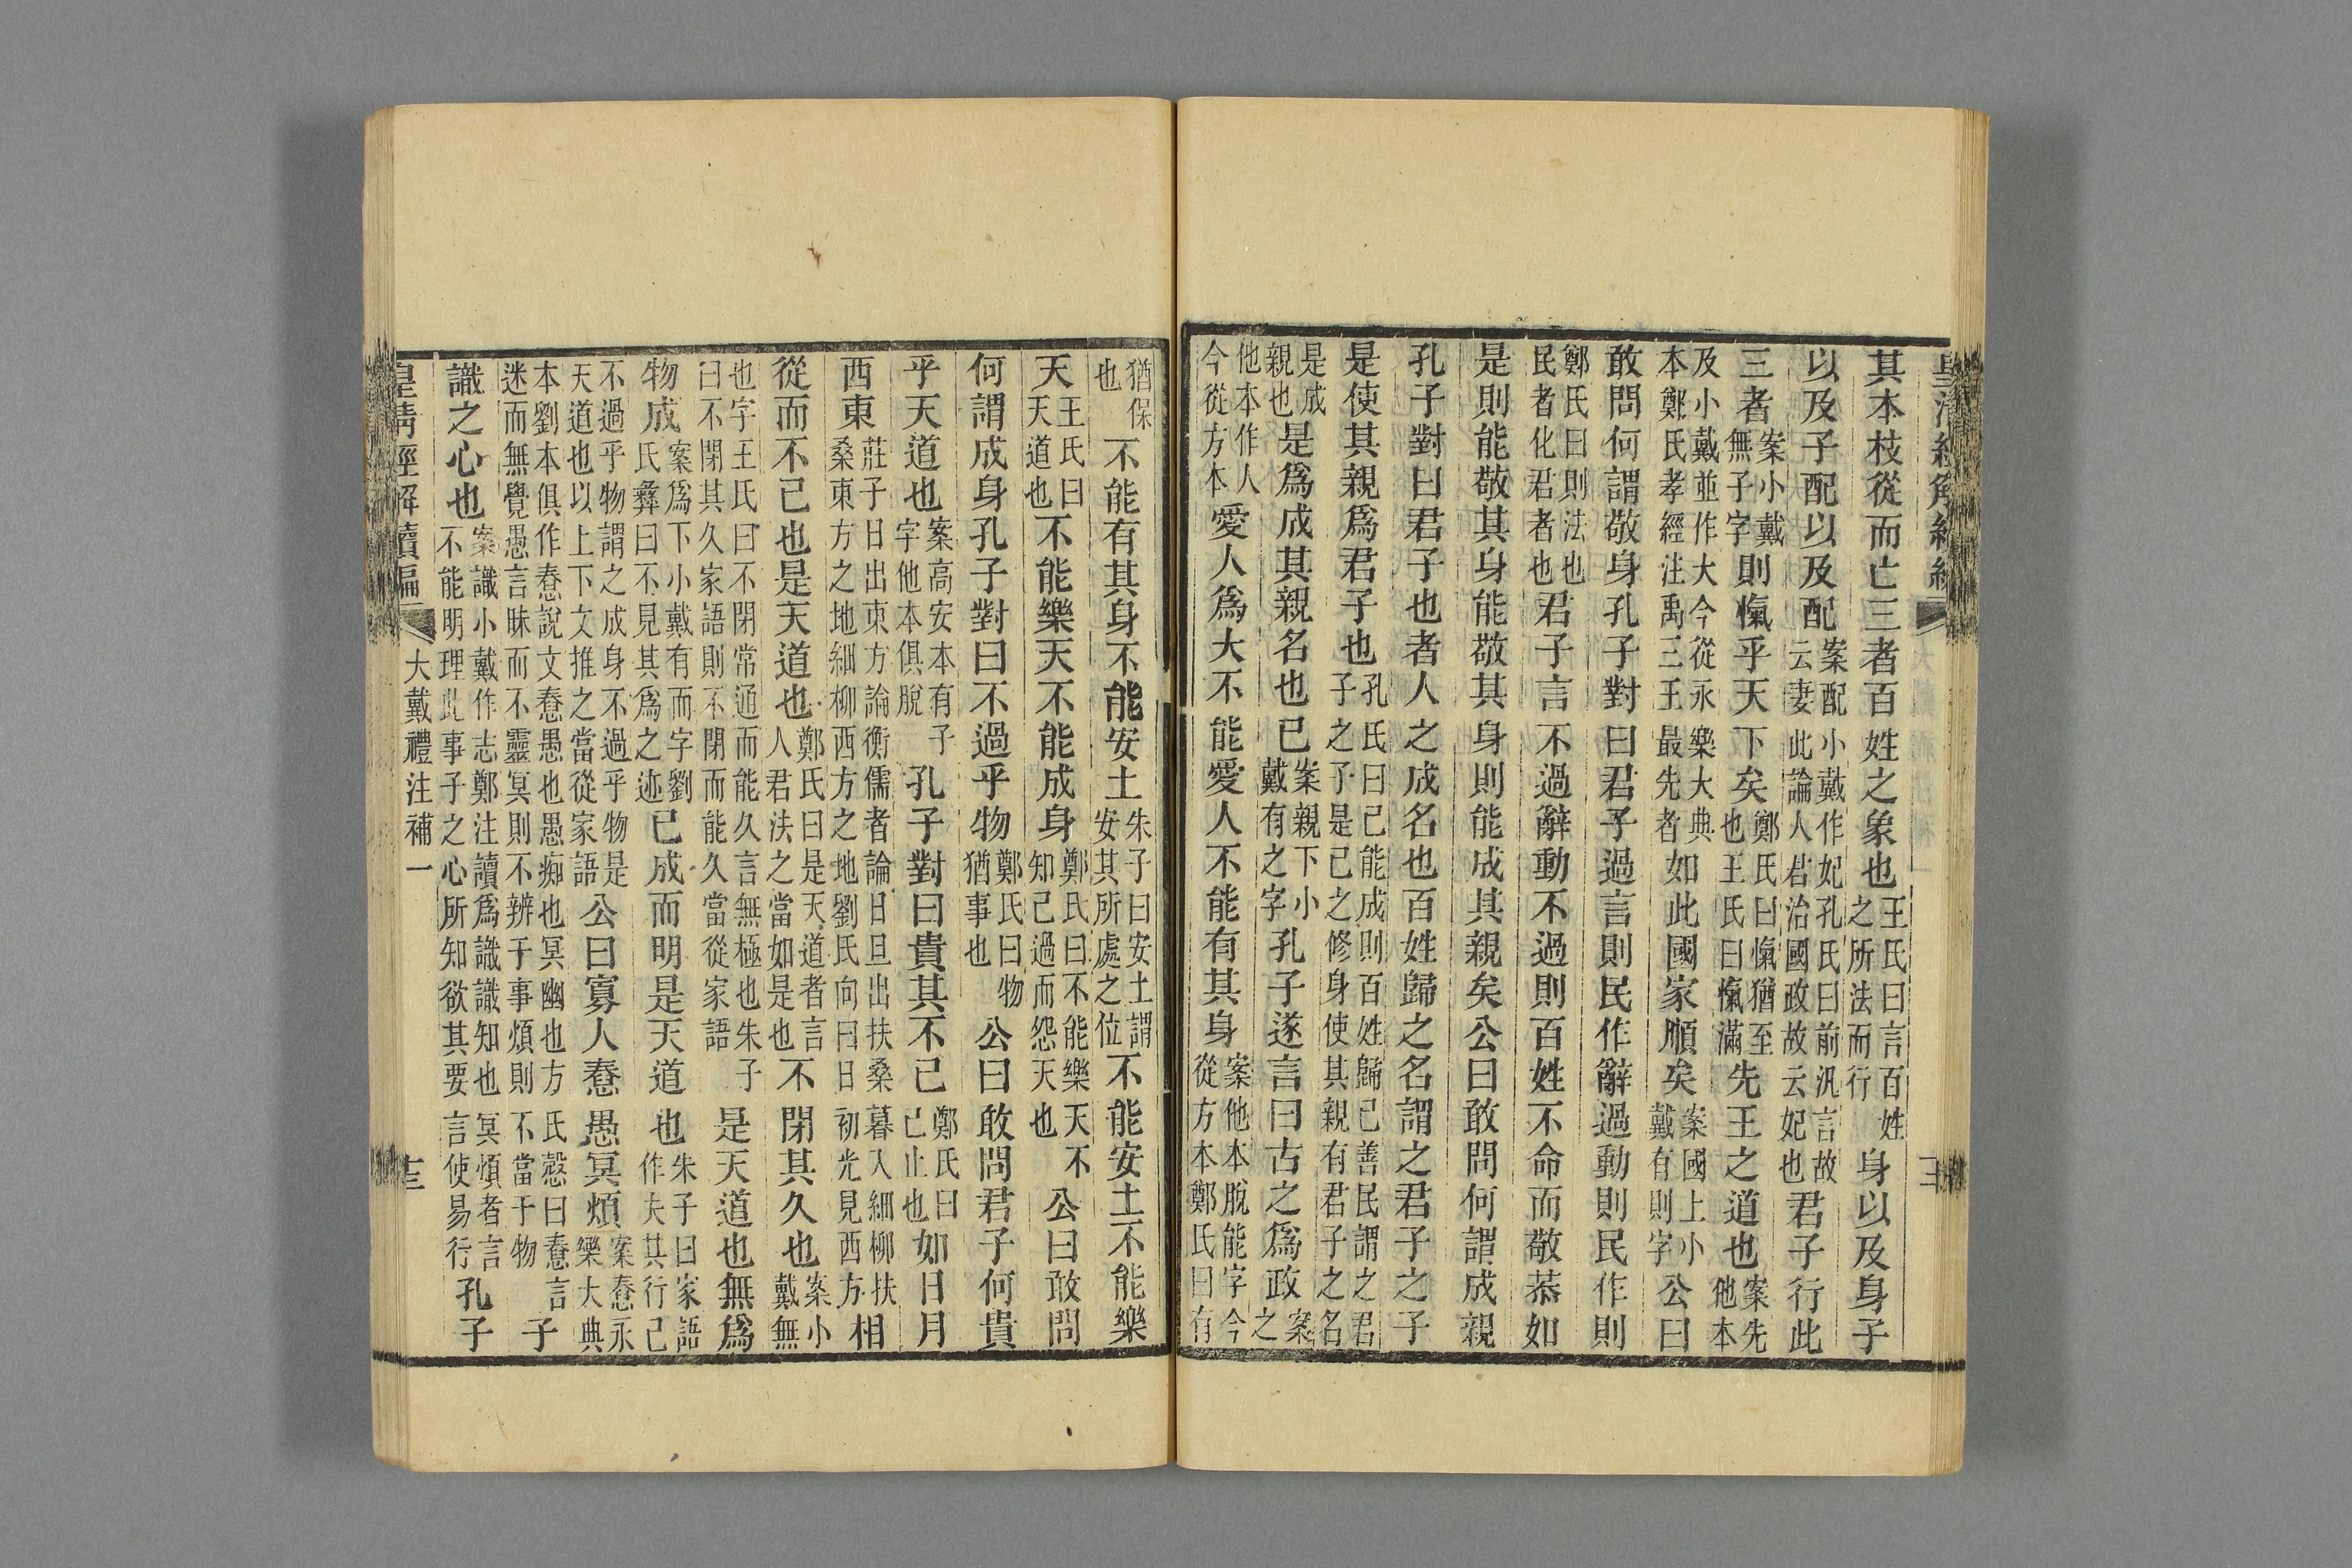 其本枝從而亡三者百姓之象也王氏曰言百姓之所法而行身以及身子
以及子配以及配案配小戴作妃孔氏曰前汎言故云妻此論人君治國政故云妃也君子行此
三者案小戴無子字則愾乎天下矣鄭氏曰愾猶至也王氏曰愾滿先王之道也案先他本
及小戴並作大今從永樂大典本鄭氏孝經注禹三王最先者如此國家順矣案國上小戴有則字公曰
敢問何謂敬身孔子對曰君子過言則民作辭過動則民作則
鄭氏曰則法也民者化君者也君子言不過辭動不過則百姓不命而敬恭如
是則能敬其身能敬其身則能成其親矣公曰敢問何謂成親
孔子對曰君子也者人之成名也百姓歸之名謂之君子之子
是使其親為君子也孔氏曰己能成則百姓歸己善民謂之君子之子是己之修身使其親有君子之名
是成親也是爲成其親名也已案親下小戴有之字孔子遂言曰古之爲政案之
他本作人今從方本愛人爲大不能愛人不能有其身案他本脫能字今從方本鄭氏曰有
猶保也不能有其身不能安土朱子曰安土謂安其所處之位不能安土不能樂
天王氏曰天道也不能樂天不能成身鄭氏曰不能樂天不知己過而怨天也公曰敢問
何謂成身孔子對曰不過乎物鄭氏曰物猶事也公曰敢問君子何貴
乎天道也案高安本有子字他本俱脫孔子對曰貴其不已鄭氏曰已止也如日月
西東莊子日出東方論衡儒者論日旦出扶桑暮入細柳扶桑東方之地細柳西方之地劉氏向曰日初光見西方相
從而不已也是天道也鄭氏曰是天道者言人君法之當如是也不閉其久也案小戴無
也字王氏曰不閉常通而能久言無極也朱子曰不閉其久家語則不閉而能久當從家語是天道也無爲
物成案爲下小戴有而字劉氏彝曰不見其爲之迹已成而明是天道也朱子曰家語作夫其行己
不過乎物謂之成身不過乎物是天道也以上下文推之當從家語公曰寡人憃愚冥煩案憃永樂大典
本劉本俱作惷說文惷愚也愚痴也冥幽也方氏愨曰憃言迷而無覺愚言昧而不靈冥則不辨于事煩則不當于物子
識之心也案識小戴作志鄭注讀爲識識知也冥煩者言不能明理此事子之心所知欲其要言使易行孔子
皇清經解續編
大戴禮注補一